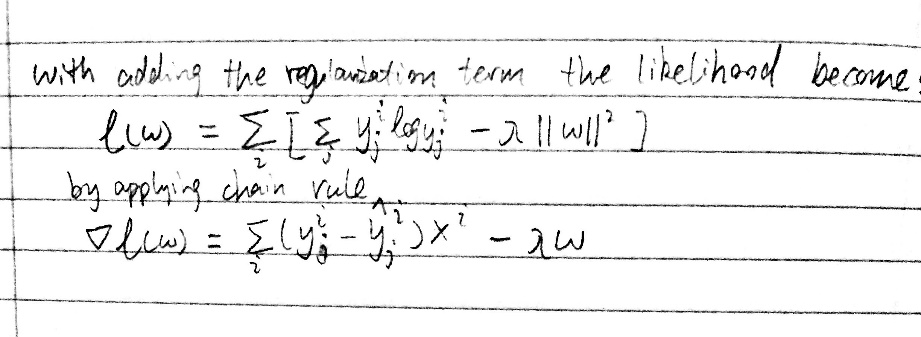 with adding the regularization term the likelihood become:
l(w) = Σ_i [ Σ_j y_j^i log y_j^i - λ ||w||² ]
by applying chain rule
∇l(w) = Σ_i (y_j^i - ŷ_j^i) x^i - λw